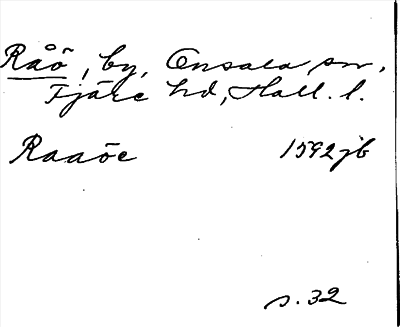 Råö, by, Onsala sn,
Fjäre hd, Hall. l.
Raaöe 1592 jb
s. 32